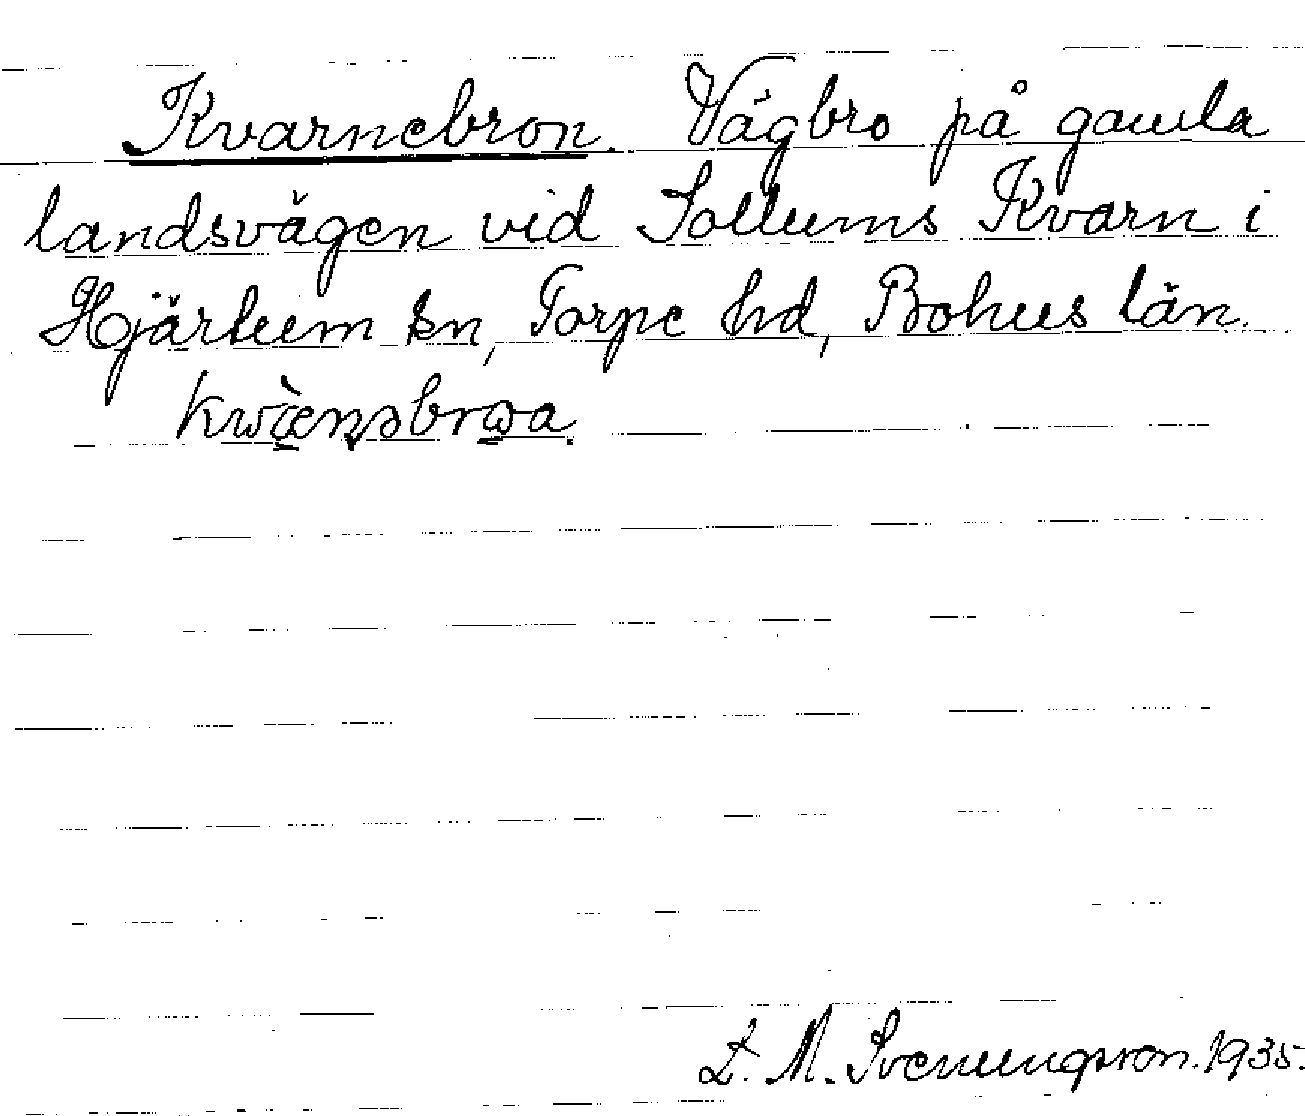 Kvarnebron. Vägbro på gamla
landsvägen vid Sollums Kvarn i
Hjärtum sn, Torpe hd, Bohus län.
L. M. Svenungsson. 1935.